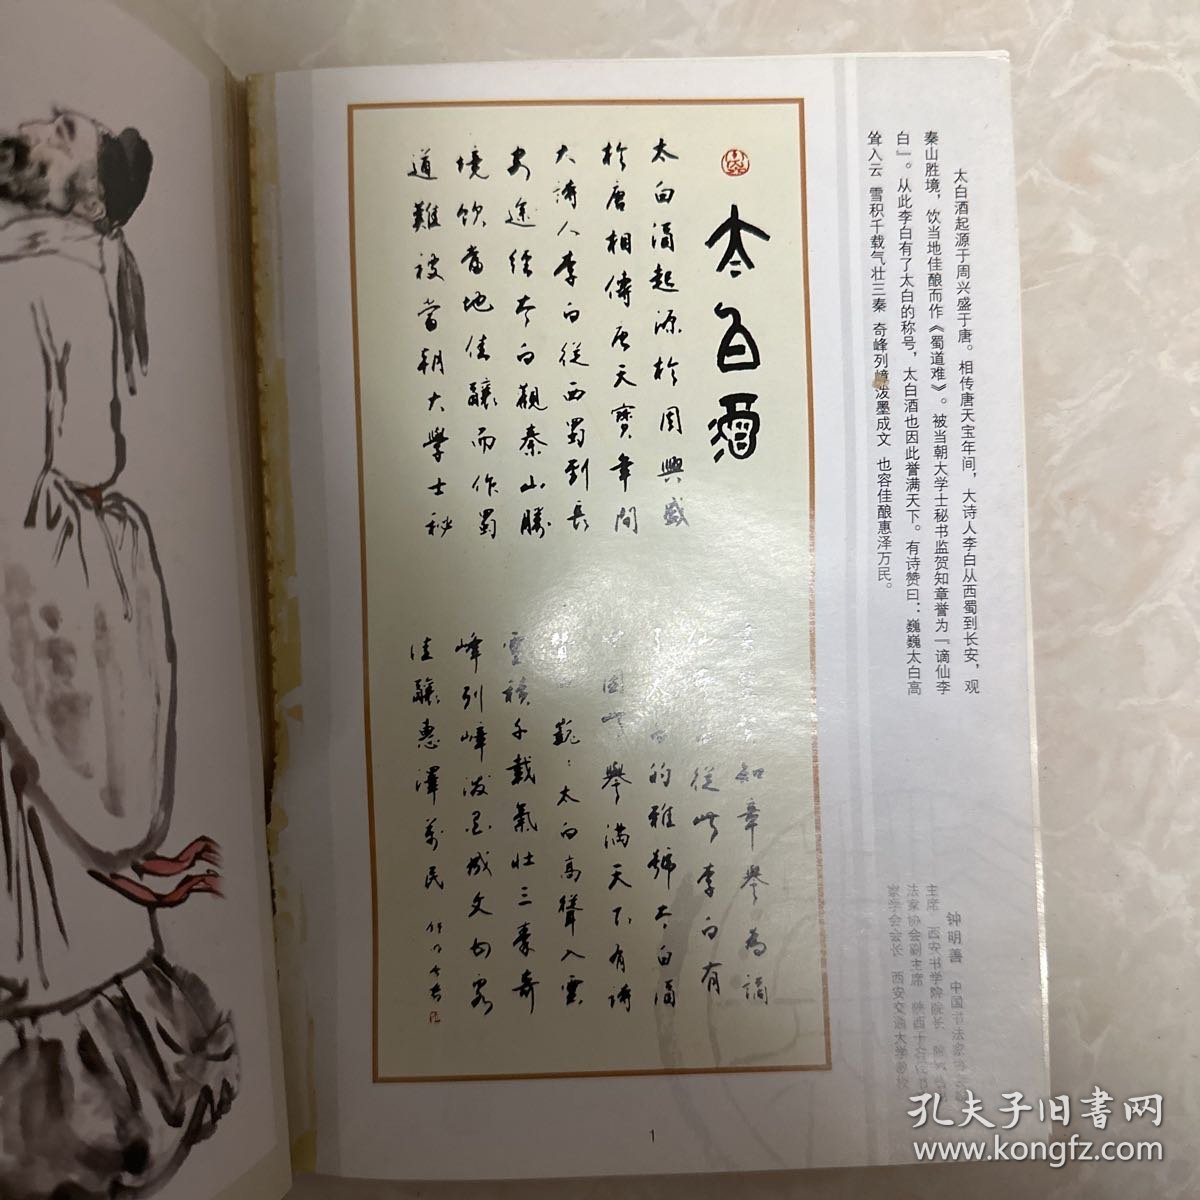 太白酒
太白酒起源於周興盛
於唐相傳唐天寶年間
大詩人李白從西蜀到長
安途經太白觀秦山勝
境飲當地佳釀而作蜀
道難被當朝大學士秘
知章譽為謫
從此李白有
的雅號太白酒
譽滿天下有詩
巍:太白高聳入雲
雪積千載氣壯三秦奇
峰列嶂潑墨成文也容
佳釀惠澤萬民
太白酒起源于周兴盛于唐。相传唐天宝年间，大诗人李白从西蜀到长安，观
秦山胜境，饮当地佳酿而作《蜀道难》。被当朝大学士秘书监贺知章誉为『谪仙李
白』。从此李白有了太白的称号，太白酒也因此誉满天下。有诗赞曰：巍巍太白高
耸入云 雪积千载气壮三秦 奇峰列嶂泼墨成文 也容佳酿惠泽万民。
钟明善 中国书法家协会
主席 西安书学院院长
法家协会副主席 陕西
家学会会长 西安交通大学
1
孔夫子旧書网
www.kongfz.com